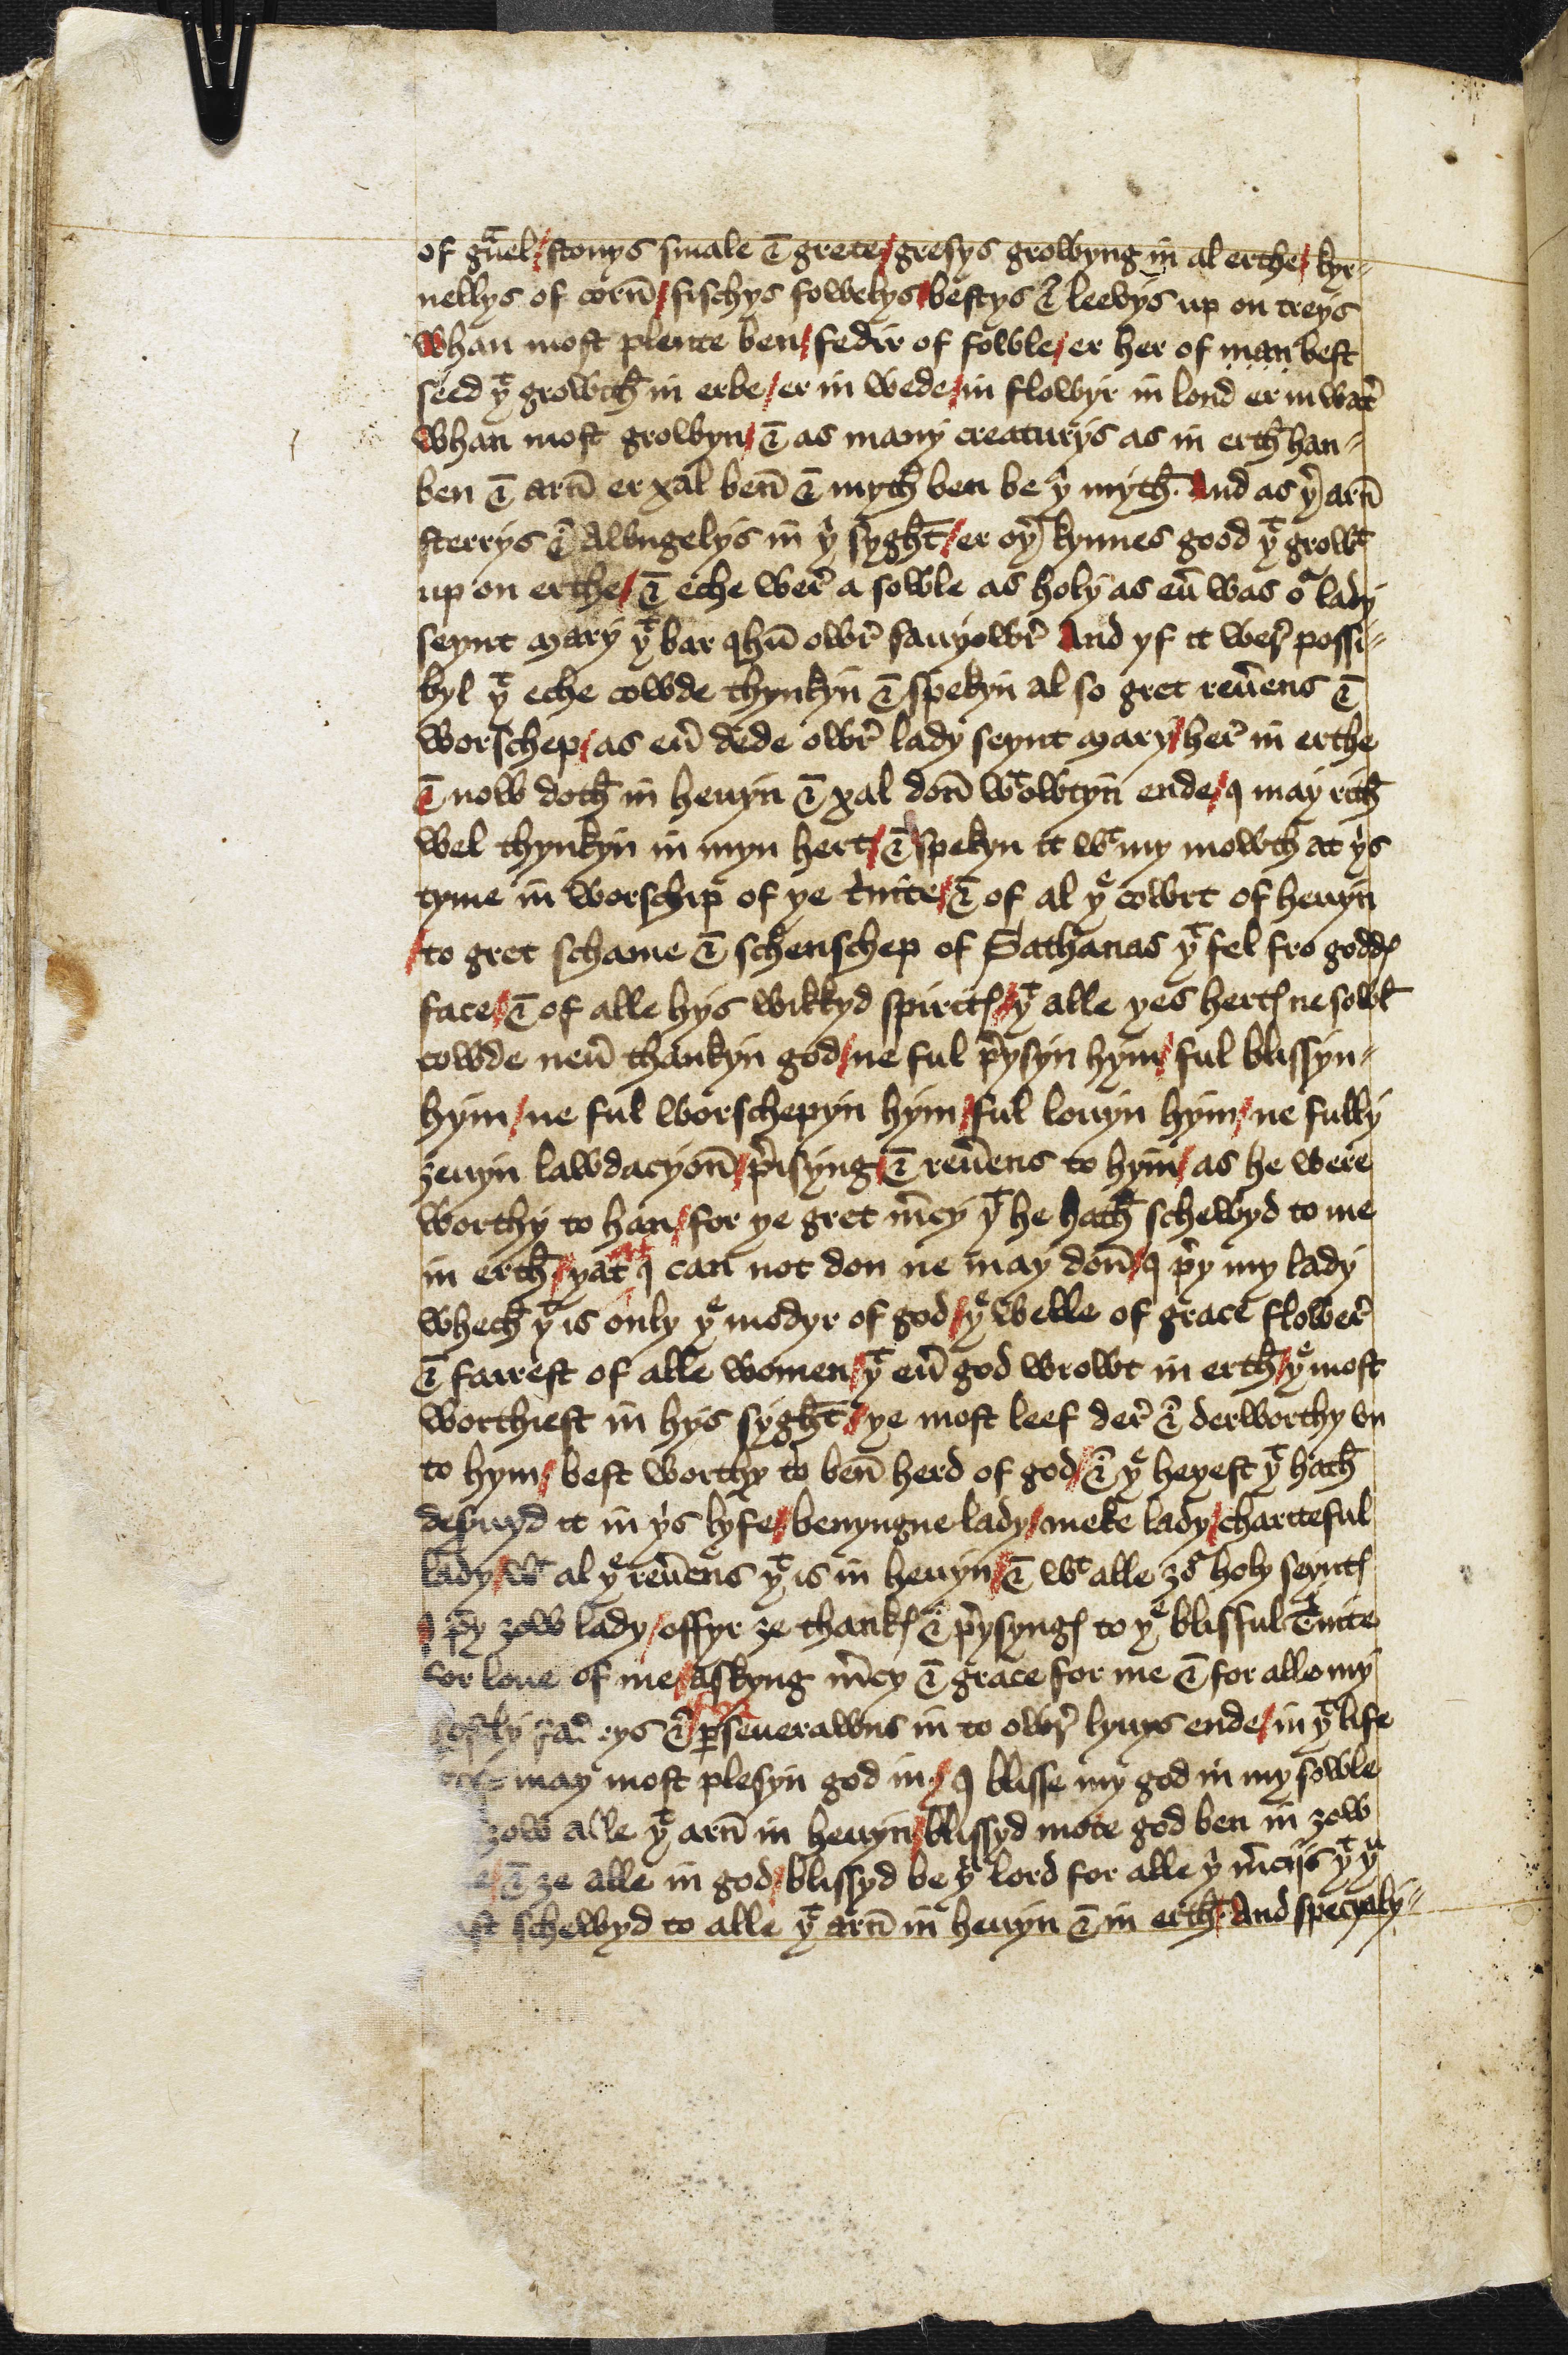 of gᵃuel / stonys smale & grete / gresys growyng in al erthe / kyr-
nellys of corn̄ / fischys fowelys / bestys & leevys up on treys
whan most plente ben / fedir of fowle / er her of man best
seed yᵗ growth̄ in erbe / er in wede / in flowyr in lond er in wat̄
whan most growyn / & as many creaturys as in erth̄ han-
ben & arn̄ er xal ben̄ & myth̄ ben be yⁱ myth̄. And as yer arn̄
sterrys & Awngelys in yⁱ syght̄ / er oyer kynnes good yᵗ growt
up on erthe / & eche wer̄ a sowle as holy as eū was oʳ lady
seynt mary yᵗ bar Ihū owr̄ sauyowr̄ And yf it wer̄ possi-
byl yᵗ eche cowde thynkyn & spekyn al so gret reūens &
worschep / as eū dede owr̄ lady seynt mary / her̄ in erthe
& now doth̄ in heuyn & xal don̄ wᵗ owtyn ende / I may rith̄
wel thynkyn in myn hert / & spekyn it wᵗ my mowth at yⁱs
tyme in worschip of ye tⁱnite / & of al yᵉ cowrt of heuyn
/ to gret schame & schenschep of Sathanas yᵗ fel fro godd
face / & of alle hys wikkyd spirit / yᵗ alle yes hert ne sowl
cowde neū thankyn god / ne ful p̄ysyn hym / ful blissyn-
hym / ne ful worschepyn hym / ful louyn hym / ne fully
zeuyn lawdacyon̄ / p̄isyng / & reūens to hym / as he were
worthy to han / for ye gret m̄cy yᵗ he hath̄ schewyd to me
in erth̄ / yat I can not don ne may don̄ / I p̄y my lady
whech̄ yᵗ is only yᵉ modyr of god / yᵉ welle of grace flower̄
& fairest of alle women / yᵗ eū god wrowt in erth̄ / yᵉ most
worthiest in hys syght̄ / ye most leef der̄ & derworthy vn
to hym / best worthy to ben̄ herd of god / & yᵉ heyest yᵗ hath̄
desuyd it in yⁱs lyfe / benyngne lady / meke lady / chariteful
lady / wᵗ al yᵉ reūens yᵗ is in heuyn / & wᵗ alle zoʳ holy seynt
I p̄y zow lady / offyr ze thank & p̄ysyng to yᵉ blisful Tⁱnite
for loue of me / Askyng m̄cy & grace for me & for alle my
gostly fad.rys & p̄seuerawns in to owr̄ lyuys ende / in yᵗ life
may most plesyn god in / I blisse my god in my sowle
zow alle yᵗ arn̄ in heuyn / blissyd mote god ben in zow
& ze alle in god / blissyd be yᵘ lord for alle yⁱ m̄cijs yᵗ yᵘ
ast schewyd to alle yᵗ arn̄ in heuyn & in erth̄. And specyaly-